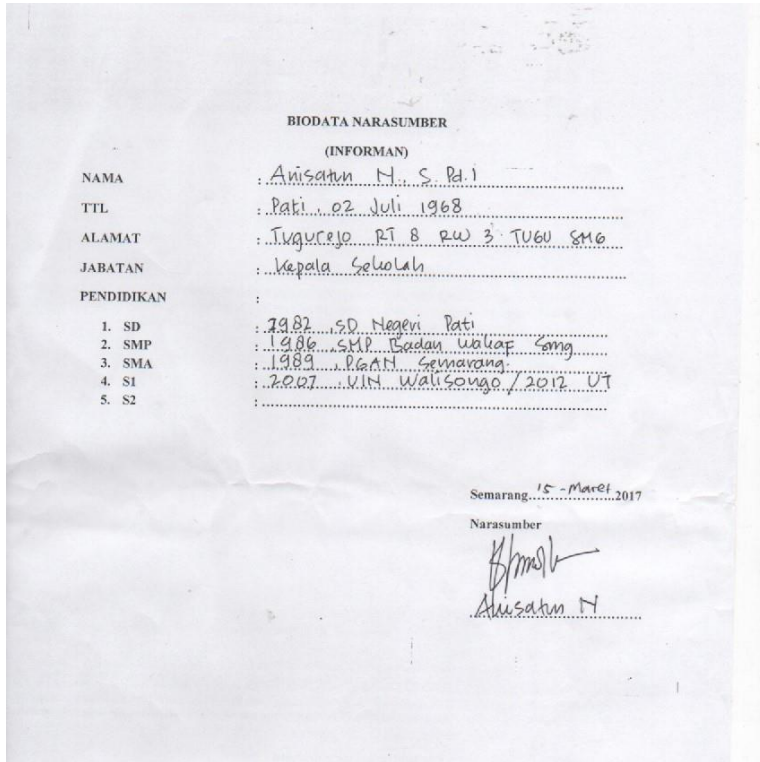 BIODATA NARASUMBER
(INFORMAN)
NAMA : Anisatun N., S.Pd.I
TTL : Pati, 02 Juli 1968
ALAMAT : Tugurejo RT 8 RW 3 TUGU SMG
JABATAN : Kepala Sekolah
PENDIDIKAN :
1. SD : 1982, SD Negeri Pati
2. SMP : 1986, SMP Badan Wakaf Smg
3. SMA : 1989, PGAN Semarang.
4. S1 : 2007. UIN Walisongo / 2012 UT
5. S2 :
Semarang, 15 - Maret 2017
Narasumber
Anisatun N